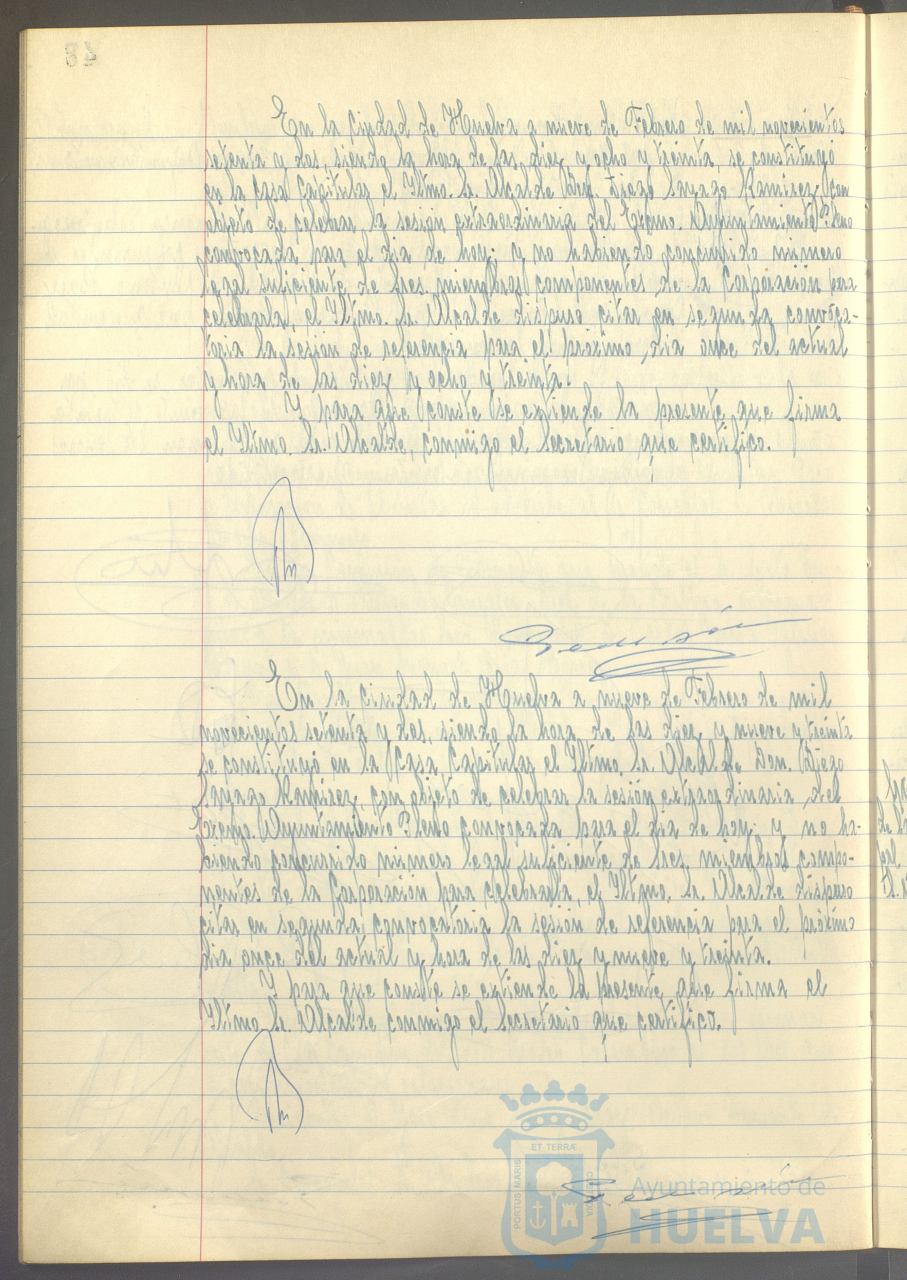 En la ciudad de Huelva a nueve de Febrero de mil novecientos
setenta y dos, siendo la hora de las diez y ocho y treinta, se constituyó
en la Casa Capitular el Iltmo. Sr. Alcalde Don. Diego Sayago Ramirez, con
objeto de celebrar la sesión extraordinaria del Excmo. Ayuntamiento Pleno
convocada para el dia de hoy; y no habiendo concurrido número
legal suficiente de sres. miembros componentes de la Corporación para
celebrarla, el Iltmo. Sr. Alcalde dispuso citar en segunda convoca-
toria la sesión de referencia para el próximo dia once del actual
y hora de las diez y ocho y treinta.
Y para que conste se extiende la presente que firma
el Iltmo. Sr. Alcalde, conmigo el Secretario que certifico.
En la ciudad de Huelva a nueve de Febrero de mil
novecientos setenta y dos, siendo la hora de las diez y nueve y treinta
se constituyó en la Casa Capitular el Iltmo. Sr. Alcalde Don. Diego
Sayago Ramirez, con objeto de celebrar la sesión extraordinaria del
Excmo. Ayuntamiento Pleno convocada para el dia de hoy; y no ha-
biendo concurrido número legal suficiente de sres. miembros compo-
nentes de la Corporación para celebrarla, el Iltmo. Sr. Alcalde dispuso
citar en segunda convocatoria la sesión de referencia para el próximo
dia once del actual y hora de las diez y nueve y treinta.
Y para que conste se extiende la presente que firma el
Iltmo. Sr. Alcalde conmigo el Secretario que certifico.
ET TERRÆ
PORTUS MARIS
CUSTODIA
Ayuntamiento de
HUELVA